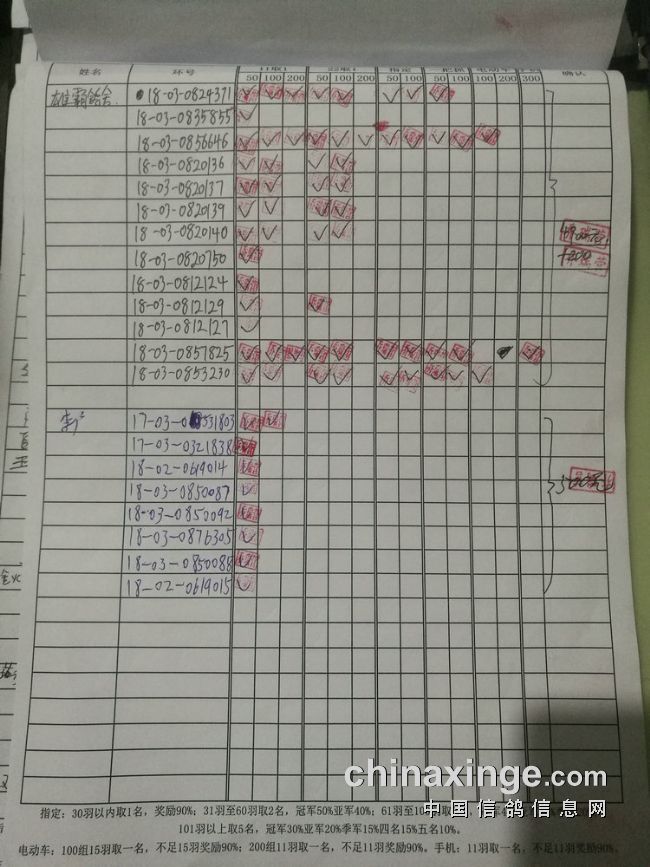 姓名 环号 11取1 22取1 指定 一把抓 电动车 手机 确认
50 100 200 50 100 200 50 100 50 100 100 200 300
18-03-0824371
18-03-0835855
18-03-0856646
18-03-0820136
18-03-0820137
18-03-0820139
18-03-0820140
18-03-0820750
18-03-0812124
18-03-0812129
18-03-0812127
18-03-0857825
18-03-0853230
17-03-0531803
17-03-0321838
18-02-0619014
18-03-0850087
18-03-0850092
18-03-0876305
18-03-0850088
18-02-0619015
chinaxinge.com
中国信鸽信息网
指定：30羽以内取1名，奖励90%；31羽至60羽取2名，冠军50%亚军40%；61羽至10
101羽以上取5名，冠军30%亚军20%季军15%四名15%五名10%。
电动车：100组15羽取一名，不足15羽奖励90%；200组11羽取一名，不足11羽奖励90%。手机：11羽取一名，不足11羽奖励90%。